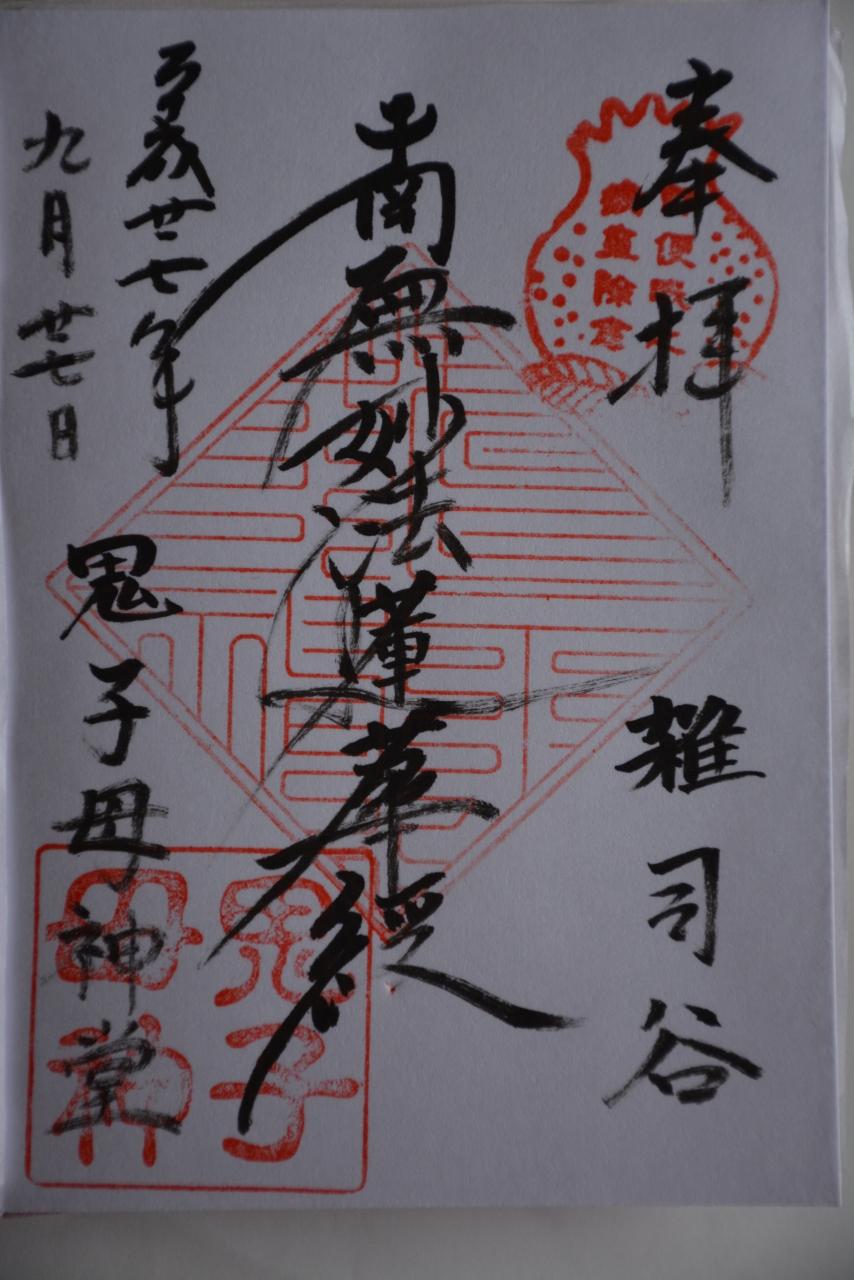 奉拝
雑司谷
南無妙法蓮華経
平成廿七年
九月廿七日
鬼子母神堂
鬼子
母神